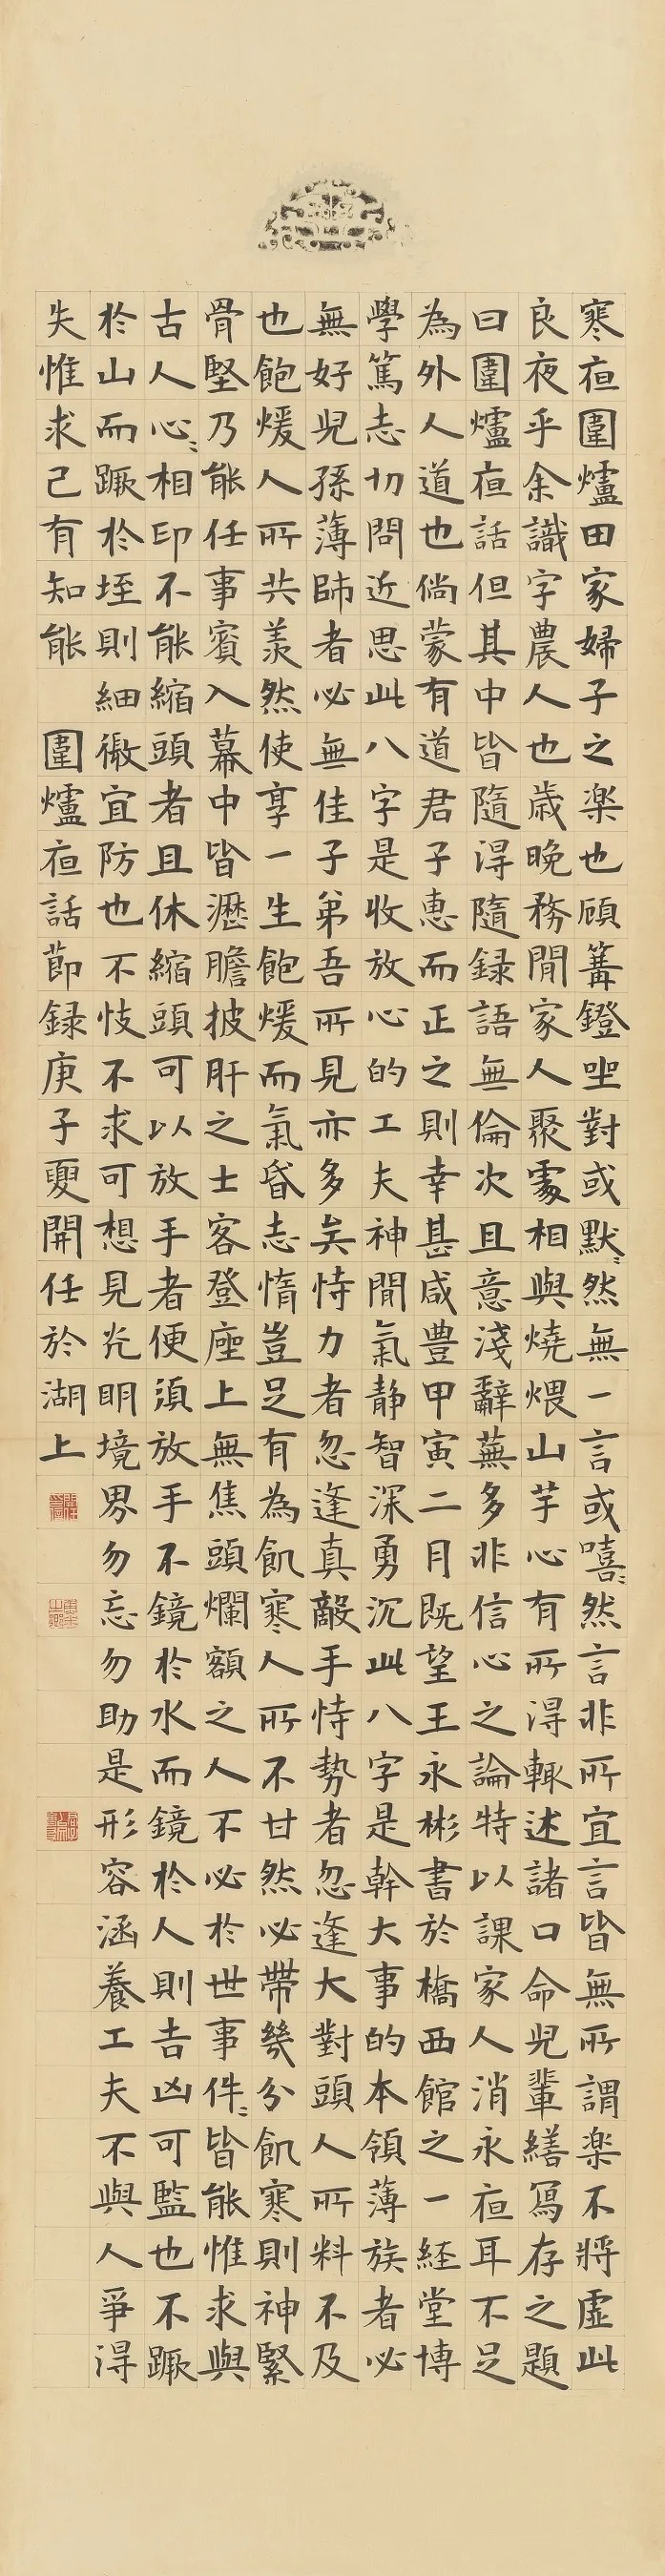 寒夜圍爐田家婦子之楽也顧篝鐙坐對或默〻然無一言或嘻〻然言非所宜言皆無所謂楽不將虛此
良夜乎余識字農人也歳晚務閒家人聚處相與燒煨山芋心有所得輒述諸口命兒輩繕寫存之題
曰圍爐夜話但其中皆隨得隨録語無倫次且意淺辭蕪多非信心之論特以課家人消永夜耳不足
為外人道也倘蒙有道君子惠而正之則幸甚咸豊甲寅二月既望王永彬書於橋西館之一經堂博
學篤志切問近思此八字是收放心的工夫神閒氣静智深勇沉此八字是幹大事的本領薄族者必
無好兒孫薄師者必無佳子弟吾所見亦多矣恃力者忽逢真敵手恃勢者忽逢大對頭人所料不及
也飽煖人所共羨然使享一生飽煖而氣昏志惰豈足有為飢寒人所不甘然必帶幾分飢寒則神緊
骨堅乃能任事賓入幕中皆瀝膽披肝之士客登座上無焦頭爛額之人不必於世事件〻皆能惟求與
古人心〻相印不能縮頭者且休縮頭可以放手者便須放手不鏡於水而鏡於人則吉凶可監也不蹶
於山而蹶於垤則細微宜防也不忮不求可想見光明境界勿忘勿助是形容涵養工夫不與人爭得
失惟求己有知能 圍爐夜話節録庚子夏開任於湖上